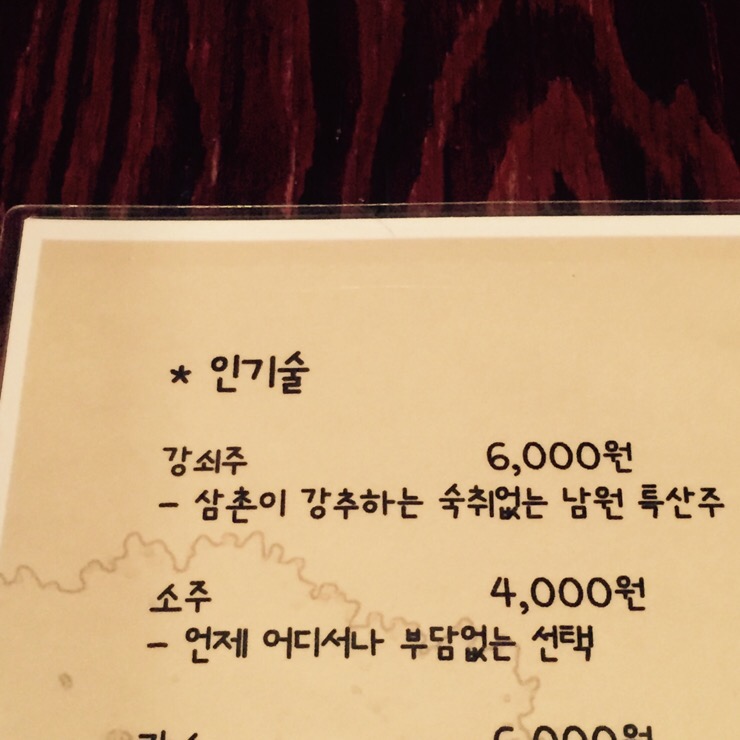 * 인기술
강쇠주 6,000원
- 삼촌이 강추하는 숙취없는 남원 특산주
소주 4,000원
- 언제 어디서나 부담없는 선택